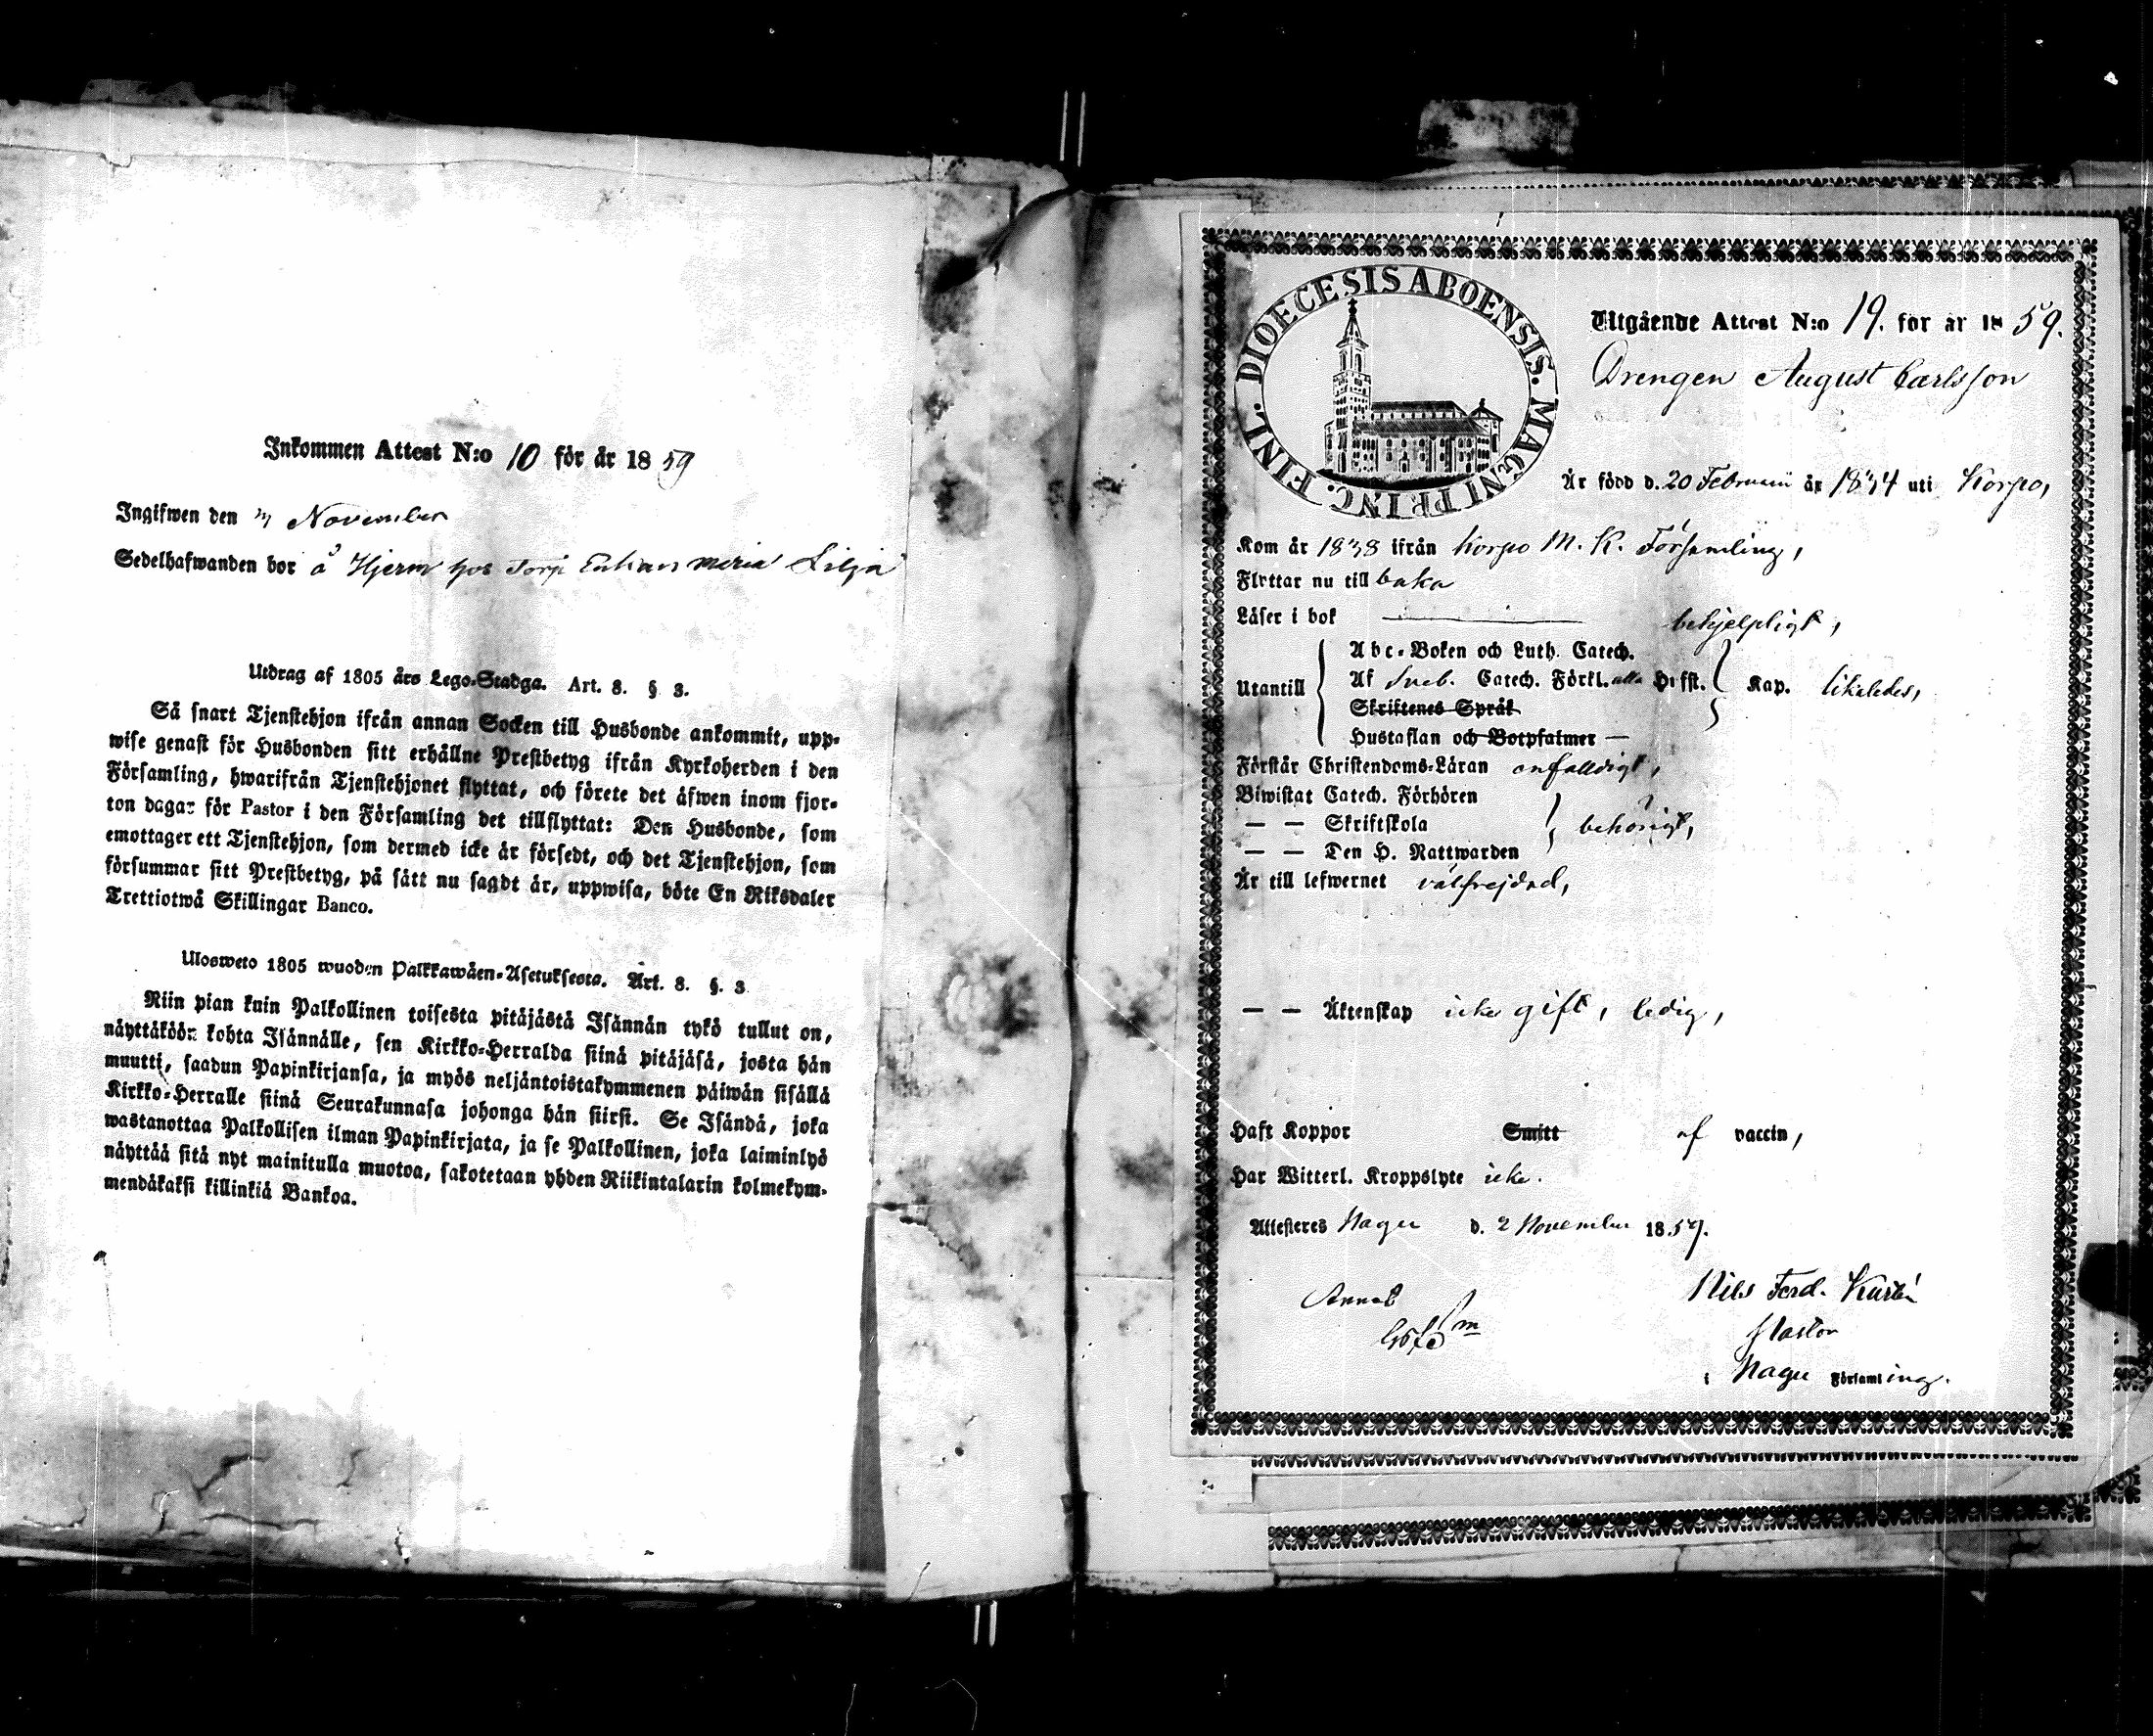 Inkommen Attest N:o 10 för år 1859
Ingifwen den November
Sedelhafwanden bor å Hjerm hos Torp Enkan Maria Lilja
Utdrag af 1805 års Lego-Stadga. Art. 8. § 3.
Så snart Tjenstehjon ifrån annan Socken till Husbonde ankommit, upp-
wise genast för Husbonden sitt erhållne Prestbetyg ifrån Kyrkoherden i den
Församling, hwarifrån Tjenstehjonet flyttat, och förete det äfwen inom fjor-
ton dagar för Pastor i den Församling det tillflyttat: Den Husbonde, som
emottager ett Tjenstehjon, som dermed icke är försedt, och det Tjenstehjon, som
försummar sitt Prestbetyg, på sätt nu sagdt är, uppwisa, böte En Riksdaler
Trettiotwå Skillingar Banco.
Ulosweto 1805 wuoden Palkkawäen-Asetuksesta. Art. 8. §. 3
Niin pian kuin Palkollinen toisesta pitäjästä Isännän tykö tullut on,
näyttäköön kohta Isännälle, sen Kirkko-Herralda siinä pitäjäsä, josta hän
muutti, saadun Papinkirjansa, ja myös neljäntoistakymmenen päiwän sisällä
Kirkko-Herralle siinä Seurakunnasa johonga hän siirsi. Se Isändä, joka
wastanottaa Palkollisen ilman Papinkirjata, ja se Palkollinen, joka laiminlyö
näyttää sitä nyt mainitulla muotoa, sakotetaan yhden Riikintalarin kolmekym-
mendäkaksi killinkiä Bankoa.
DIOECESIS ABOENSIS. MAGNI PRINC. FINL.
Utgående Attest N:o 19. för år 1859.
Drengen August Carlsson
Är född d. 20 Februari år 1834 uti Korpo,
Kom år 1838 ifrån Korpo M. K. Församling,
Flyttar nu till baka
Läser i bok behjelpligt,
Abc-Boken och Luth. Catech.
Utantill Af Sveb. Catech. Förkl. alla Hufst. Kap. likaledes,
Skriftenes Språk
Hustaflan och Botpsalmer —
Förstår Christendoms-Läran enfalldigt,
Biwistat Catech. Förhören
— — Skriftskola behörigt,
— — Den H. Nattwarden
Är till lefwernet välfrejdad,
— — Äktenskap icke gift, ledig,
Haft Koppor Smitt af vaccin,
Har Witterl. Kroppslyte icke.
Attesteres Nagu d. 2 November 1859.
Nils Ferd. Kurtén
Pastor
i Nagu Församling.